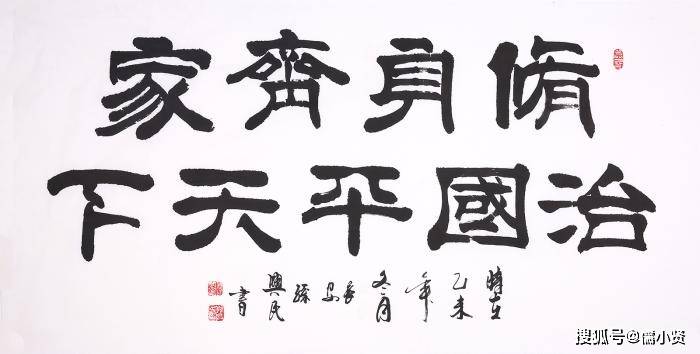 脩身齊家
治國平天下
時在乙未年冬月長安孫興民書
搜狐号@儒小贤